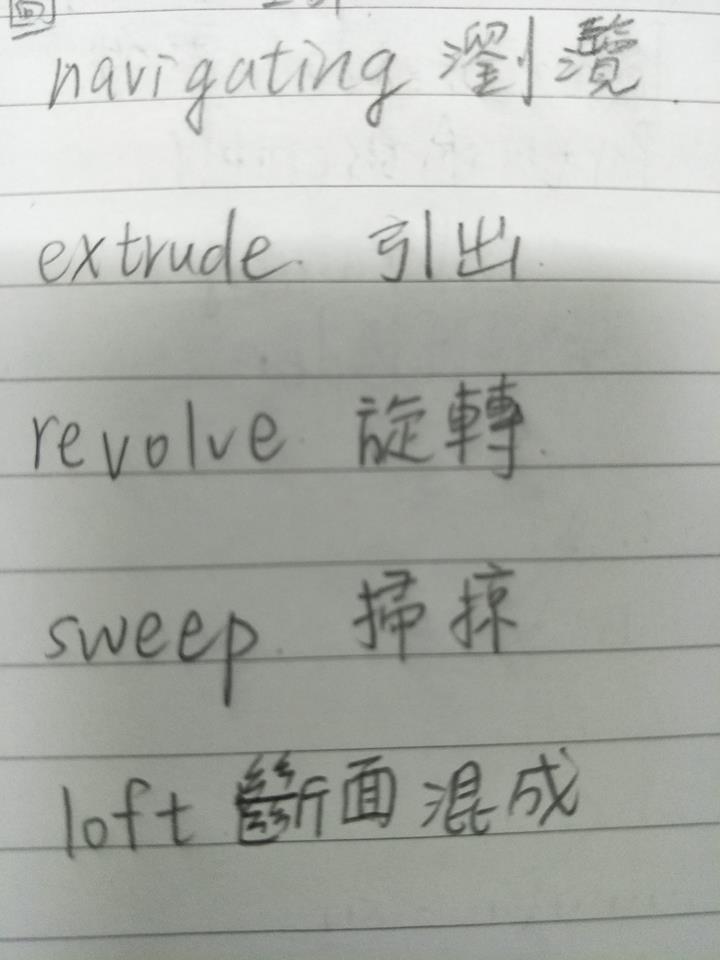 navigating 瀏灠
extrude. 引出.
revolve. 旋轉.
sweep. 掃掠
loft 斷面混成